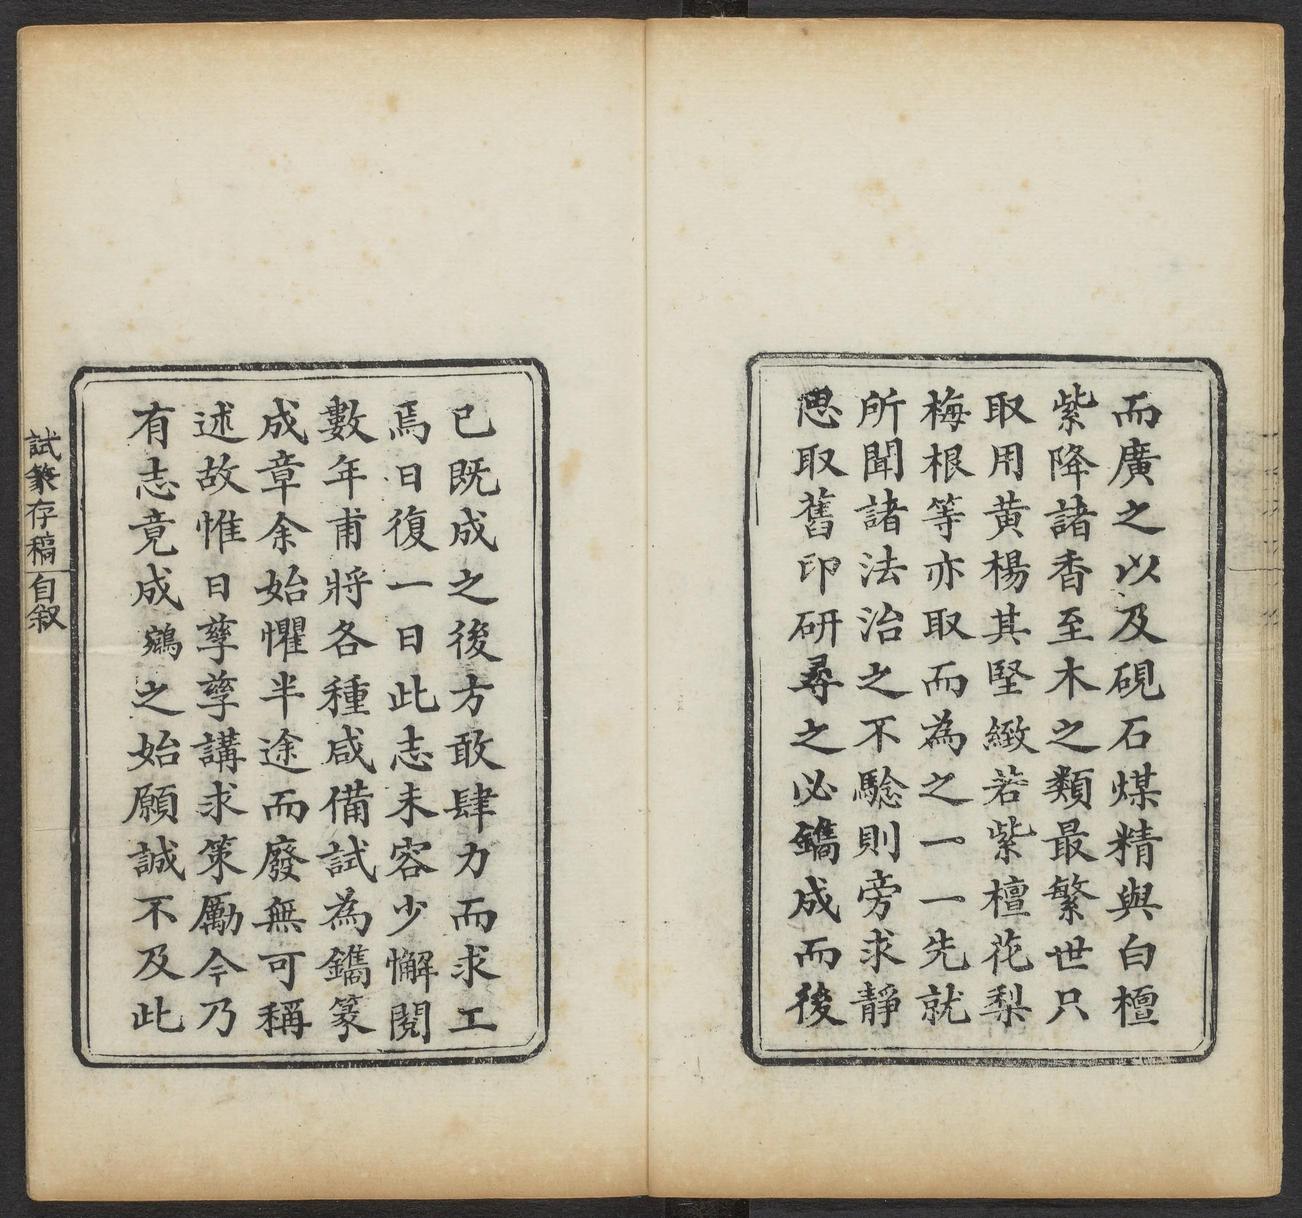 而廣之以及硯石煤精與白檀
紫降諸香至木之類最繁世只
取用黄楊其堅緻若紫檀花梨
梅根等亦取而為之一一先就
所聞諸法治之不驗則旁求靜
思取舊印研尋之必鐫成而後
已既成之後方敢肆力而求工
焉日復一日此志未容少懈閱
數年甫將各種咸備試為鐫篆
成章余始懼半途而廢無可稱
述故惟日孳孳講求策勵今乃
有志竟成鵷之始願誠不及此
試篆存稿 自叙